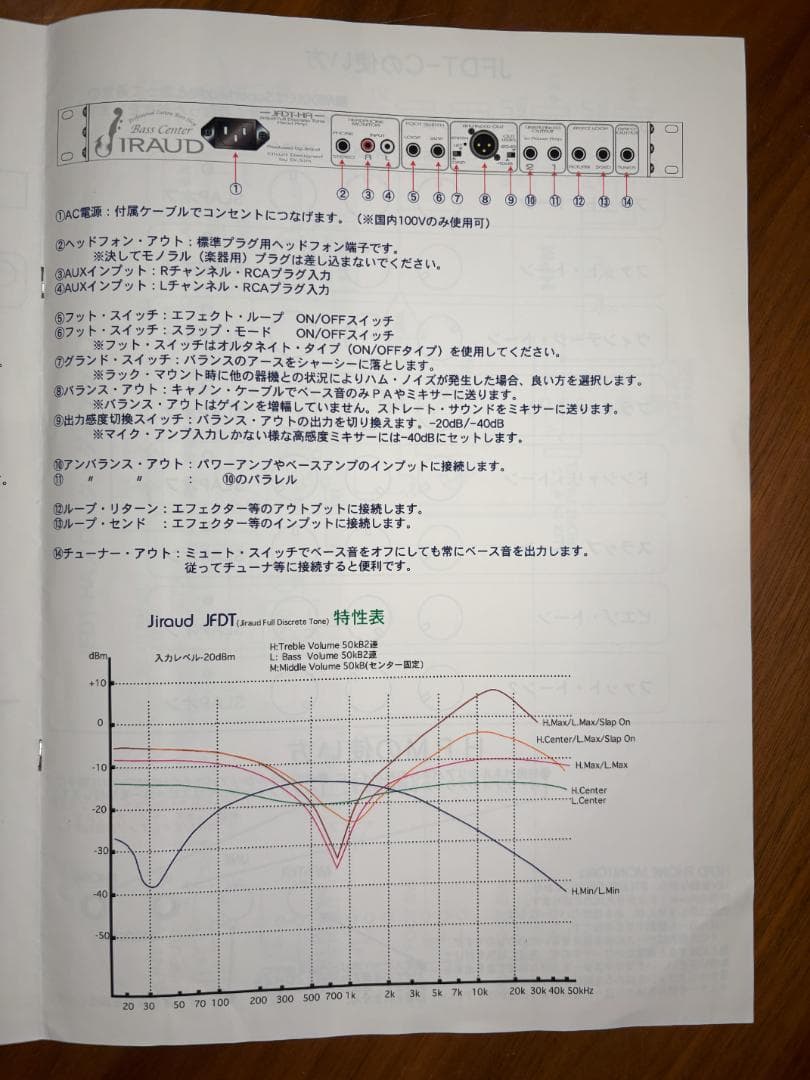 JFDT-HA
Jiraud Full Discrete Tone
Bass Center
JIRAUD
Produced by Jiraud
HEADPHONE
MONITORS
PHONE
INPUT
STEREO
R
L
FOOT SWITCH
LOOP
BALANCED OUT
UNBALANCED
OUTPUT
to Power Amp
2
1
EFFECT LOOP
SEND
TUNER
① ② ③ ④ ⑤ ⑥ ⑦ ⑧ ⑨ ⑩ ⑪ ⑫ ⑬ ⑭
①AC電源：付属ケーブルでコンセントにつなげます。（※国内100Vのみ使用可）
②ヘッドフォン・アウト：標準プラグ用ヘッドフォン端子です。
※決してモノラル（楽器用）プラグは差し込まないでください。
③AUXインプット：Rチャンネル・RCAプラグ入力
④AUXインプット：Lチャンネル・RCAプラグ入力
⑤フット・スイッチ：エフェクト・ループ ON/OFFスイッチ
⑥フット・スイッチ：スラップ・モード ON/OFFスイッチ
※フット・スイッチはオルタネイト・タイプ（ON/OFFタイプ）を使用してください。
⑦グランド・スイッチ：バランスのアースをシャーシーに落とします。
※ラック・マウント時に他の器機との状況によりハム・ノイズが発生した場合、良い方を選択します。
⑧バランス・アウト：キャノン・ケーブルでベース音のみＰＡやミキサーに送ります。
※バランス・アウトはゲインを増幅していません。ストレート・サウンドをミキサーに送ります。
⑨出力感度切換スイッチ：バランス・アウトの出力を切り換えます。-20dB/-40dB
※マイク・アンプ入力しかない様な高感度ミキサーには-40dBにセットします。
⑩アンバランス・アウト：パワーアンプやベースアンプのインプットに接続します。
⑪ 〃 〃 ： ⑩のパラレル
⑫ループ・リターン：エフェクター等のアウトプットに接続します。
⑬ループ・センド ：エフェクター等のインプットに接続します。
⑭チューナー・アウト：ミュート・スイッチでベース音をオフにしても常にベース音を出力します。
従ってチューナ等に接続すると便利です。
Jiraud JFDT(Jiraud Full Discrete Tone) 特性表
dBm
入力レベル-20dBm
H:Treble Volume 50kB2連
L: Bass Volume 50kB2連
M:Middle Volume 50kB(センター固定)
+10
0
-10
-20
-30
-40
-50
H.Max/L.Max/Slap On
H.Center/L.Max/Slap On
H.Max/L.Max
H.Center
L.Center
H.Min/L.Min
20 30 50 70 100 200 300 500 700 1k 2k 3k 5k 7k 10k 20k 30k 40k 50kHz